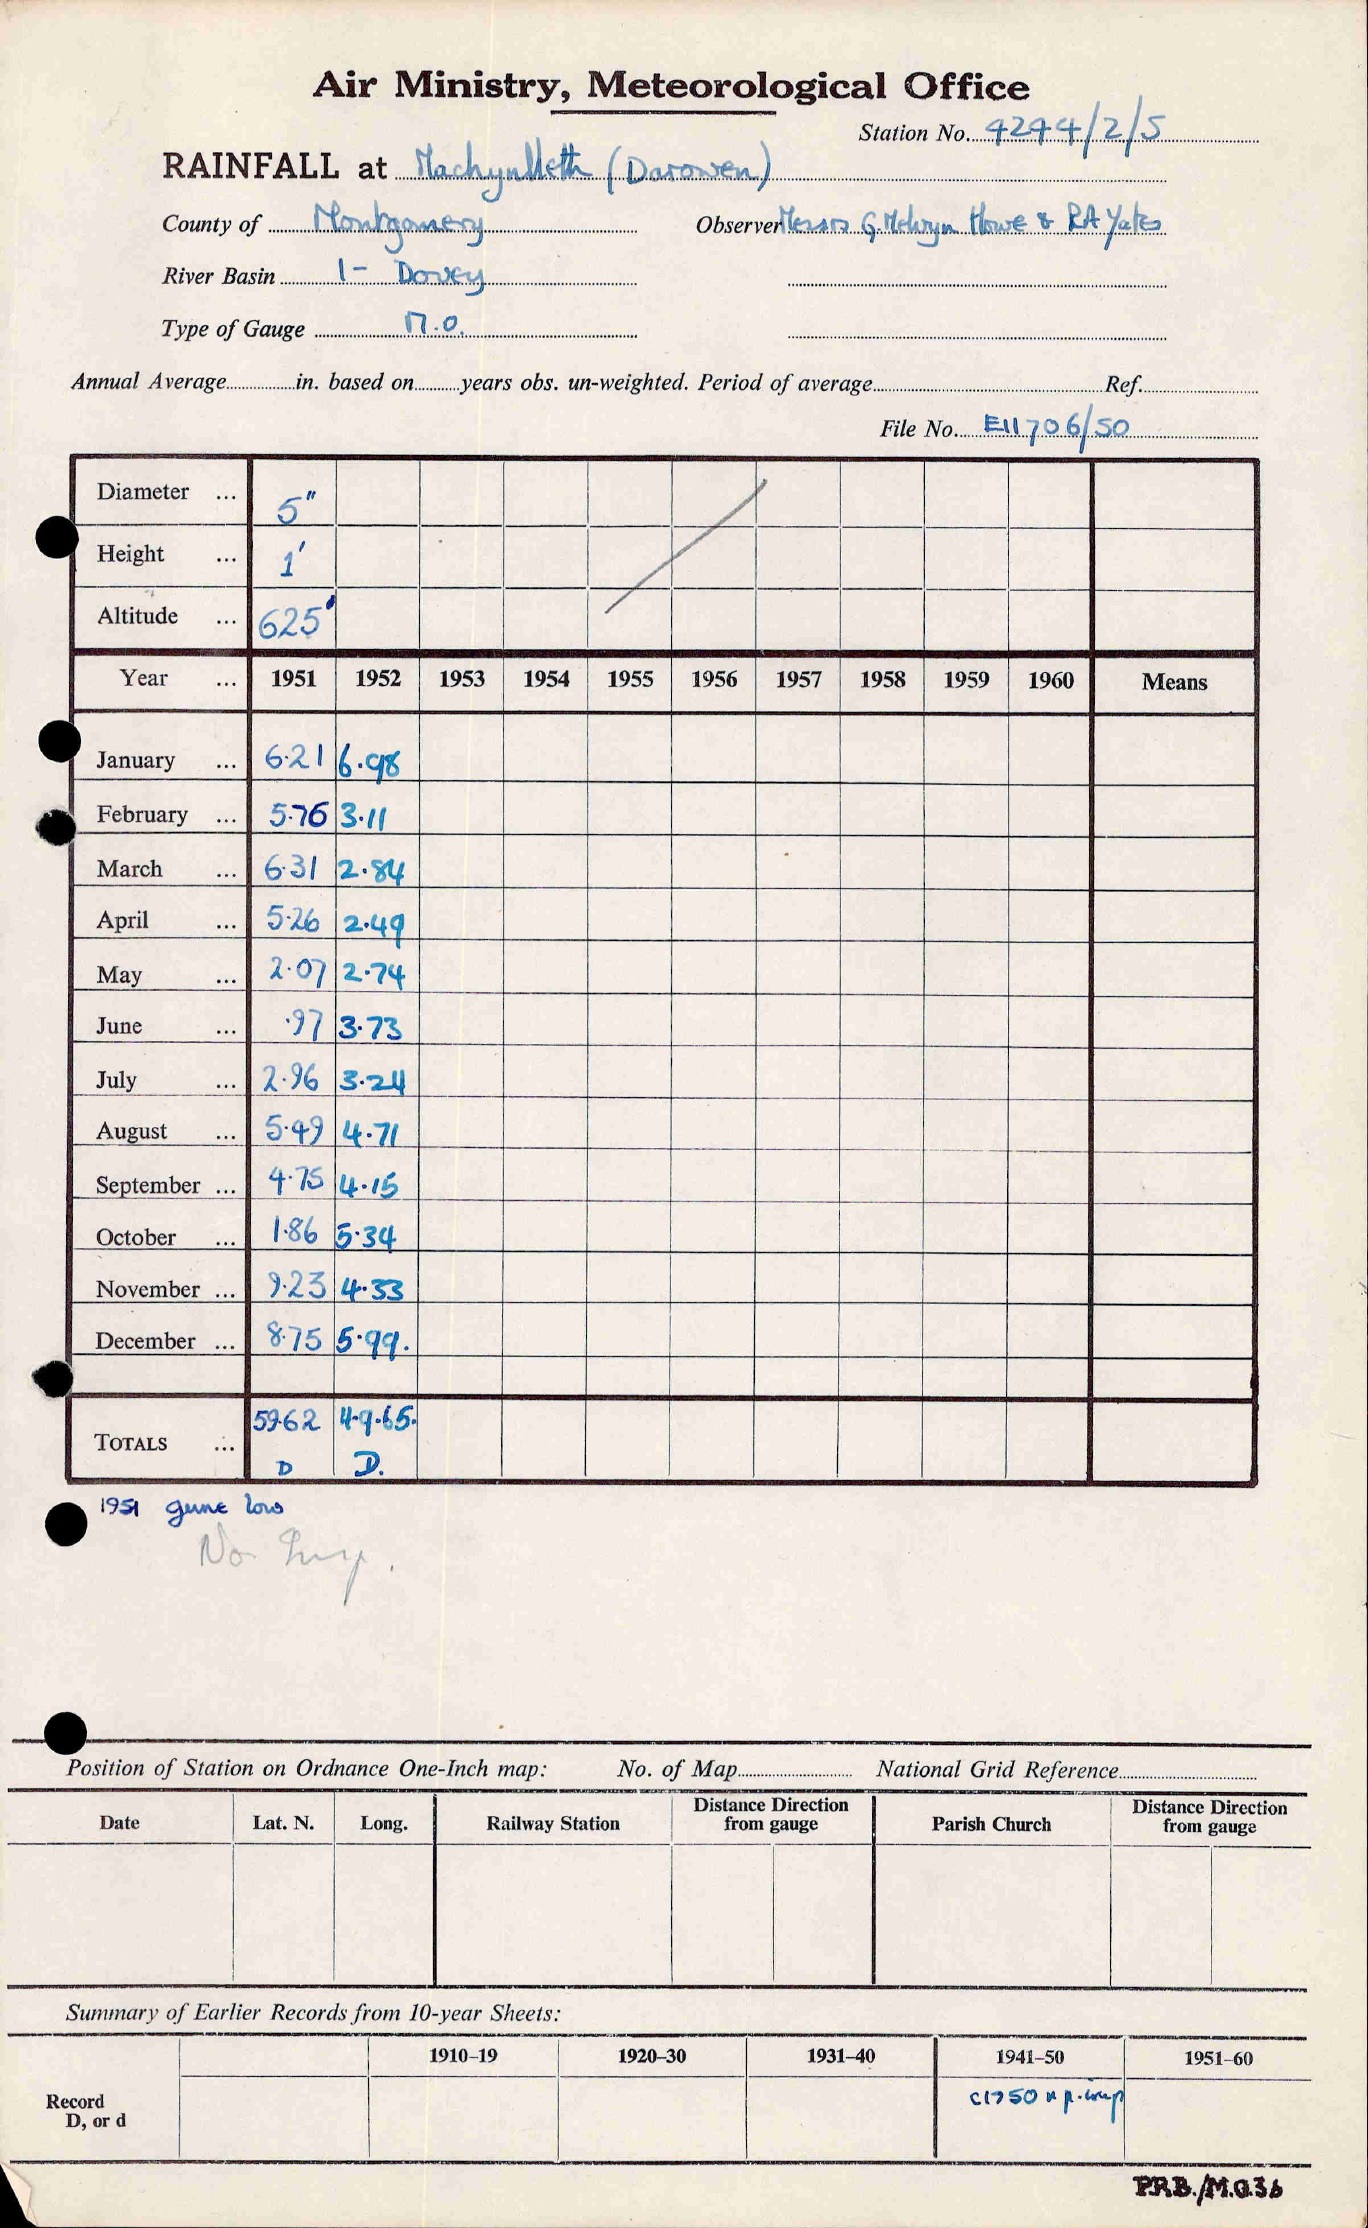 Air Ministry, Meteorological Office
Station No. 4244/2/5
RAINFALL at Machynlleth (Darowen)
County of Montgomery Observer Messrs G. Melwyn Howe & R A Yates
River Basin 1 - Dovey
Type of Gauge M.O.
Annual Average in. based on years obs. un-weighted. Period of average Ref.
File No. E11706/50
Diameter ... 5"
Height ... 1'
Altitude ... 625'
Year ... 1951 1952 1953 1954 1955 1956 1957 1958 1959 1960 Means
January ... 6.21 6.98
February ... 5.76 3.11
March ... 6.31 2.84
April ... 5.26 2.49
May ... 2.07 2.74
June ... .97 3.73
July ... 2.96 3.24
August ... 5.49 4.71
September ... 4.75 4.15
October ... 1.86 5.34
November ... 9.23 4.33
December ... 8.75 5.99.
TOTALS ... 59.62 49.65.
D D.
1951 June low
No
Position of Station on Ordnance One-Inch map: No. of Map National Grid Reference
Date Lat. N. Long. Railway Station Distance Direction from gauge Parish Church Distance Direction from gauge
Summary of Earlier Records from 10-year Sheets:
1910–19 1920–30 1931–40 1941–50 1951–60
Record
D, or d
P.R.B./M.O.36